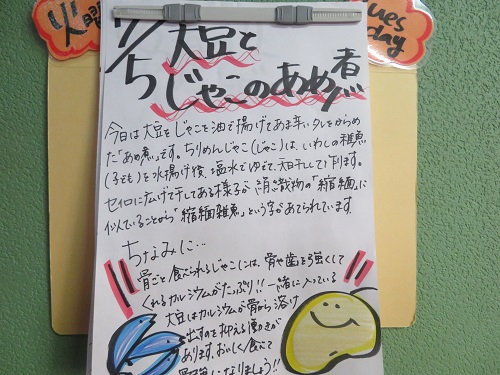 火曜
Tuesday
7/5 大豆と
じゃこのあめ煮
今日は大豆とじゃこを油で揚げてあま辛いタレをからめ
た「あめ煮」です。ちりめんじゃこ(じゃこ)は、いわしの稚魚
(子ども)を水揚げ後、塩水でゆでて、天日干しして作ります。
セイロに広げて干してある様子が絹織物の「縮緬」に
似ていることから「縮緬雑魚」という字があてられています。
ちなみに…
骨ごと食べられるじゃこには、骨や歯を強くして
くれるカルシウムがたっぷり!! 一緒に入っている
大豆はカルシウムが骨から溶け
出すのを抑える働きが
あります。おいしく食べて
になりましょう!!